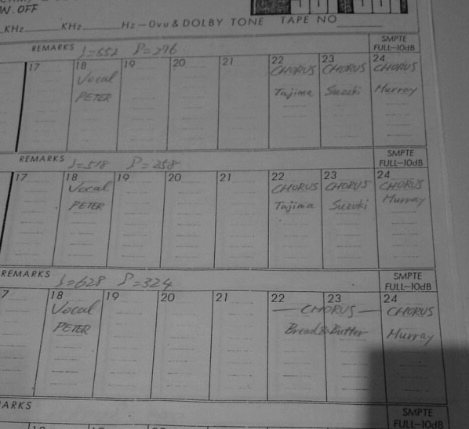 W. OFF
KHz KHz Hz-0vu & DOLBY TONE TAPE NO
REMARKS S=552 P=276 SMPTE
FULL-10dB
17 18 19 20 21 22 23 24
Vocal CHORUS CHORUS CHORUS
PETER Tajima Suzuki Murray
REMARKS P=258 SMPTE
FULL-10dB
17 18 19 20 21 22 23 24
Vocal CHORUS CHORUS CHORUS
PETER Tajima Suzuki Murray
REMARKS S=628 P=324 SMPTE
FULL-10dB
7 18 19 20 21 22 23 24
Vocal — CHORUS — CHORUS
PETER Bread & Butter Murray
ARKS SMPTE
FULL-10dB